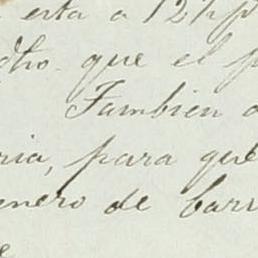 esta a 12
dho. que el p
Tambien
ria, para que
enero de barr